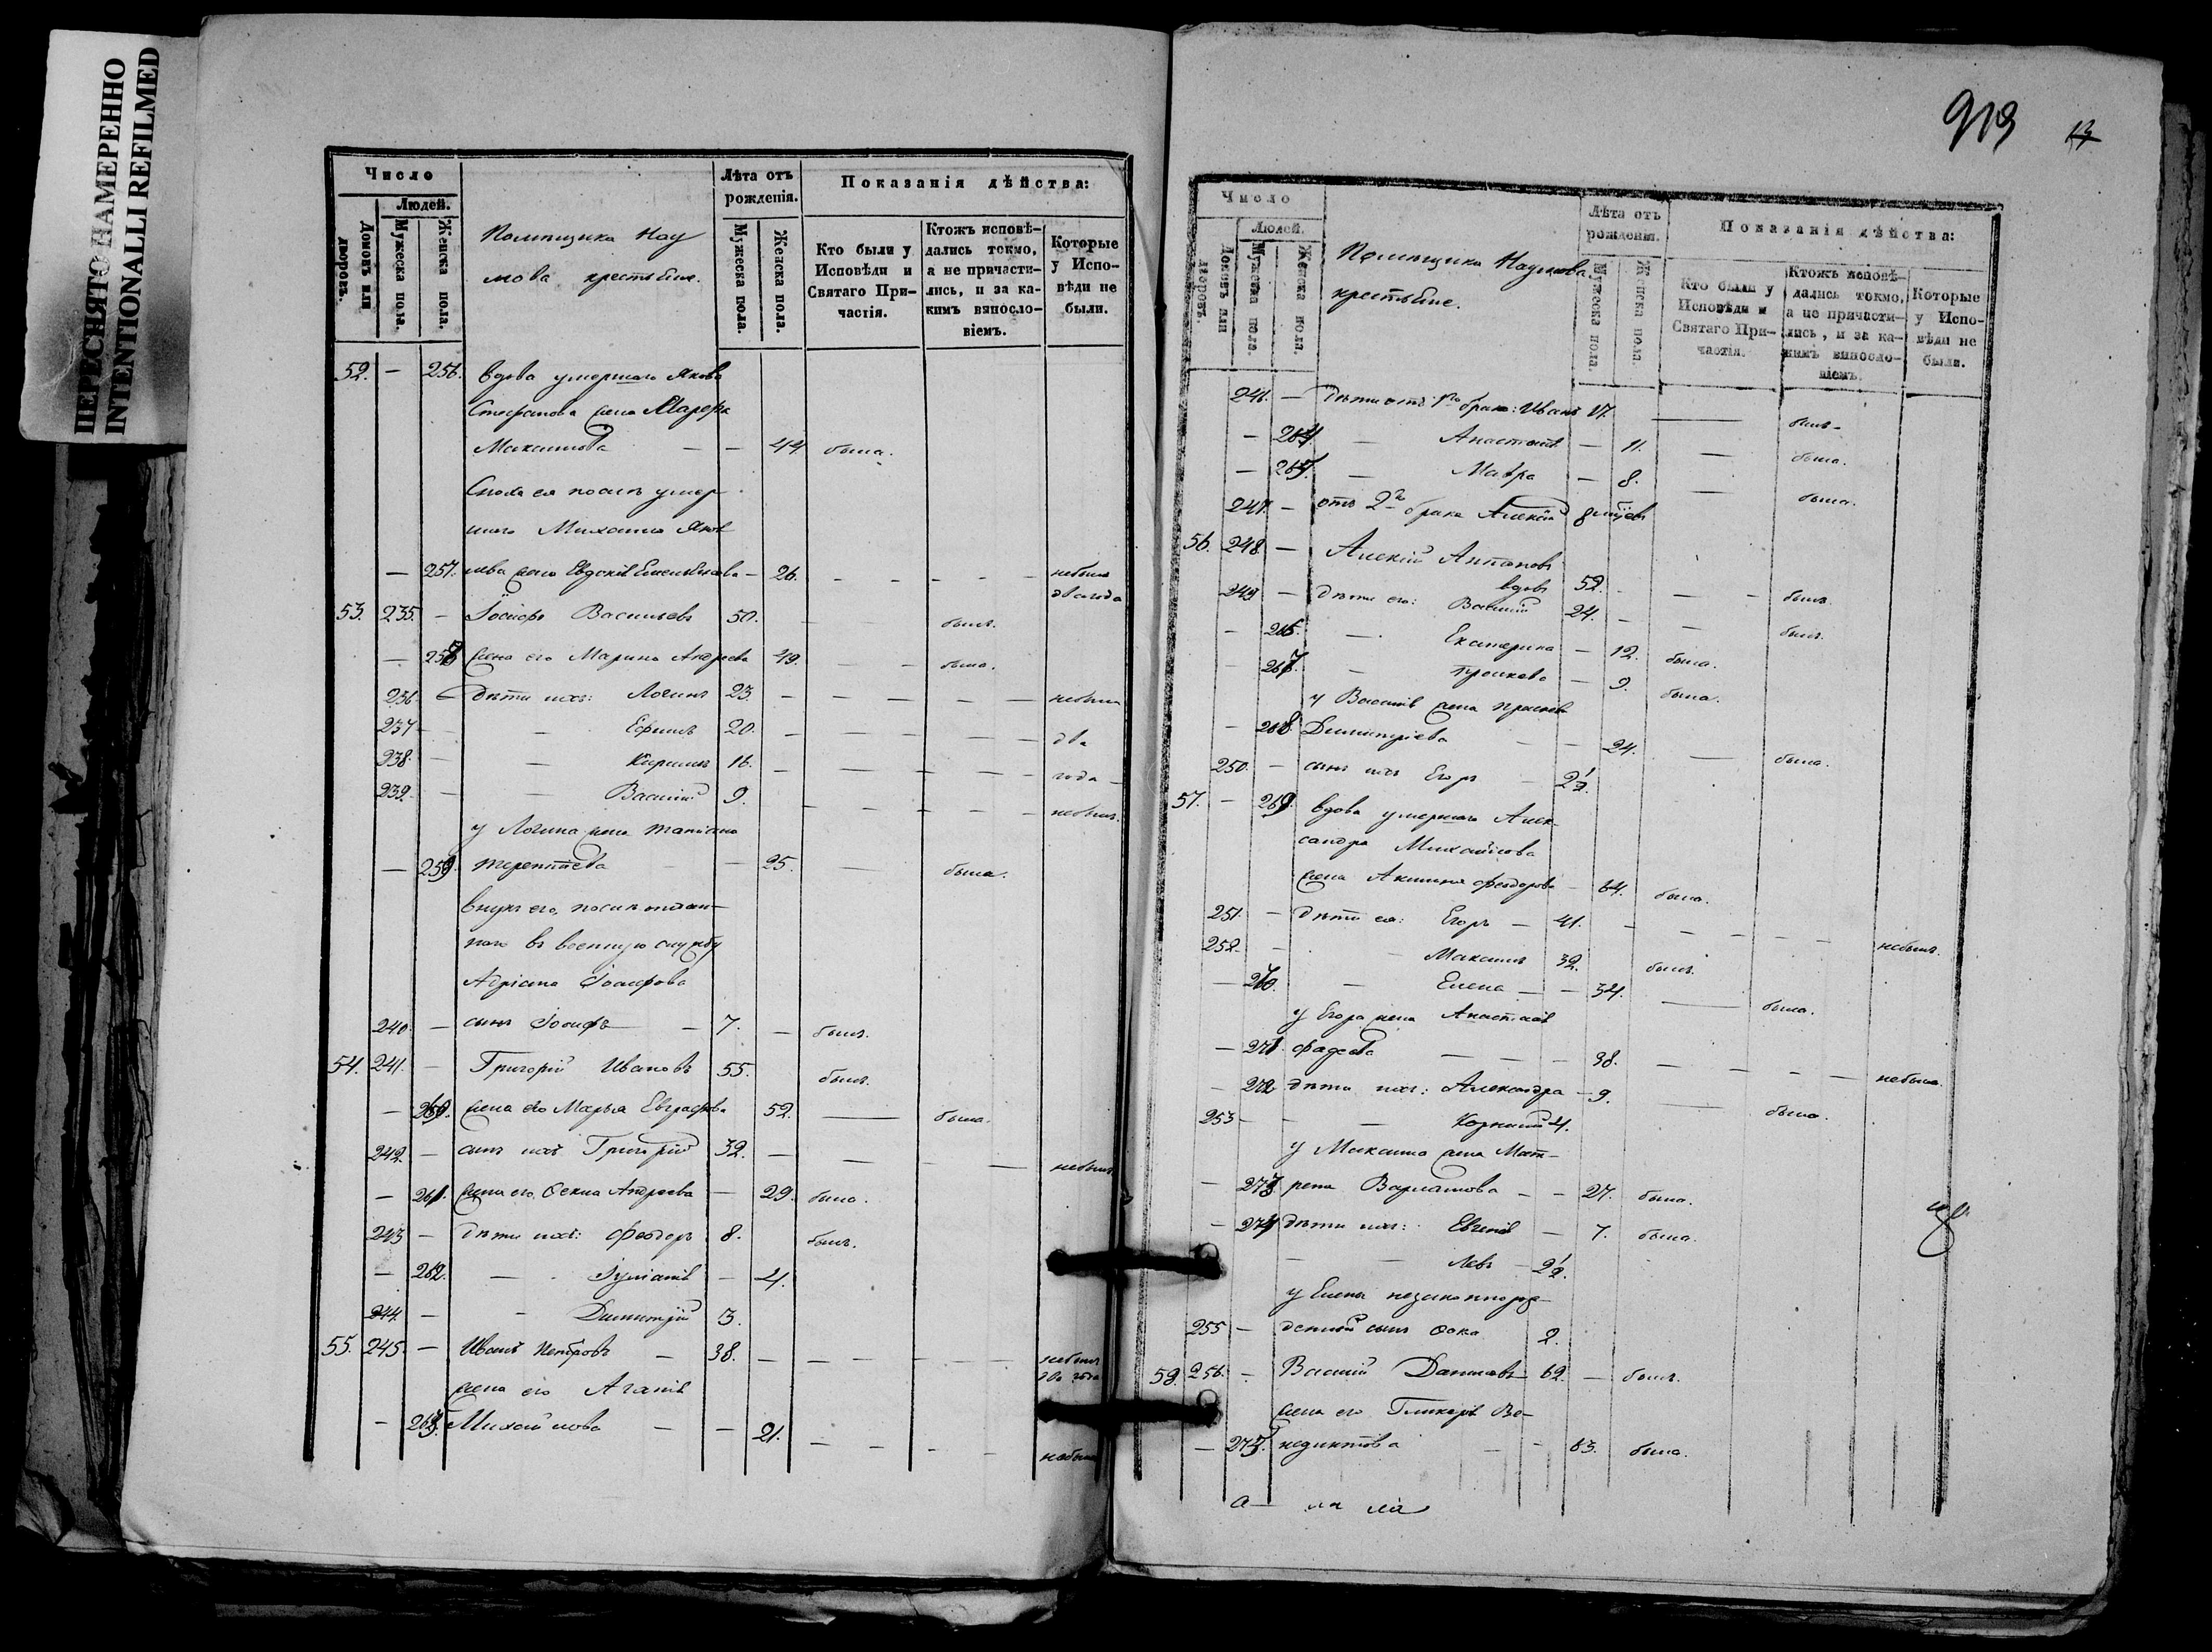 ПЕРЕСНЯТО НАМЕРЕННО
INTENTIONALLI REFILMED
Число
Людей.
Домовъ или дворовъ.
Мужеска пола.
Женска пола.
Помещика Нау
мова крестьяне.
Лѣта отъ рожденія.
Мужеска пола.
Женска пола.
Показанія дѣйства:
Кто были у Исповѣди и Святаго Причастія.
Ктожъ исповѣдались токмо, а не причастились, и за какимъ винословіемъ.
Которые у Исповѣди не были.
52. — 256. вдова умершаго Якова
Стефанова жена Марфа
Максимова — — 44 была.
Сноха ея послѣ умер
шаго Михаила Яков
— 257. лева жена Евдокія Емельянова — 26. - - - - небыла
два года
53. 235. — Іосифъ Васильевъ 50. был.
— 258 жена его Марина Андреева 49. была.
236. — дѣти ихъ: Логинъ 23. — — — — небыл
237 — — Ефимъ 20. — — — — два
238. — — Кирилъ 16. — — — — года
239. — — Василій 9. — — — — небылъ.
у Логина жена татiана
— 259. терентіева — — 25. — была.
внукъ его, послѣ отдан-
наго въ военную службу
Адріана Іосифова
240. — сынъ Іосифъ — 7. — былъ.
54. 241. — Григорій Ивановъ 55. былъ.
— 260. жена его Марья Евграфова 52. — была.
242. — сынъ ихъ Григорій 32. — — — — небылъ
— 261. жена его Фекла Андреева — 29. была.
243 — дѣти ихъ: Феодоръ 8. былъ.
— 262. — Іуліанія — 4.
244. — - Димитрій 3.
55. 245. — Иванъ Петровъ — 38. — — — — небылъ
два года
жена его Агапія
— 263. Михайлова — — 21. — — — — небыла
919 13
Число
Людей.
Домовъ или дворовъ.
Мужеска пола.
Женска пола.
Помещика Наумова
крестьяне.
Лѣта отъ рожденія.
Мужеска пола.
Женска пола.
Показанія дѣйства:
Кто были у Исповѣди и Святаго Причастія.
Ктожъ исповѣдались токмо, а не причастились, и за какимъ винословіемъ.
Которые у Исповѣди не были.
246. — дѣти отъ 1го брака: Иванъ 17. — былъ
— 264 — Анастасія — 11. — была.
— 265. — Мавра — 8. — была.
247. — отъ 2го брака Алексій 8
56. 248. — Алексій Антоновъ
вдовъ 52. - — — былъ.
249 — дѣти его: Василій 24. — — былъ.
— 266. — Екатерина — 12. была.
— 267. — Прасковья — 9. была.
у Василія жена
— 268. Димитріева — — 24. — была.
250. — сынъ ихъ Егоръ — 2½.
57. — 269. вдова умершаго Алек-
сандра Михайлова
жена Акилина Феодорова — 64. была.
251. — дѣти ея: Егоръ — 41. — — — — небылъ.
252. — - Максимъ 32. былъ.
— 270. — Елена — — 34. — была.
у Егора жена Анастасія
— 271. Фадеева — — — 38. — — — — небыла.
— 272 дѣти ихъ: Александра — 9. — была.
253 — — Корнилій 4.
у Максима жена Мат-
— 273 рена Варламова — — 27. была.
— 274 дѣти ихъ: Евгенія — 7. была.
— — Левъ — 2½.
у Елены незаконнорж-
255 — денный сынъ Фока 2.
58. 256. — Василій Даниловъ 62. — былъ.
жена его Гликерія Ве-
— 275. недиктова — — 63. была.